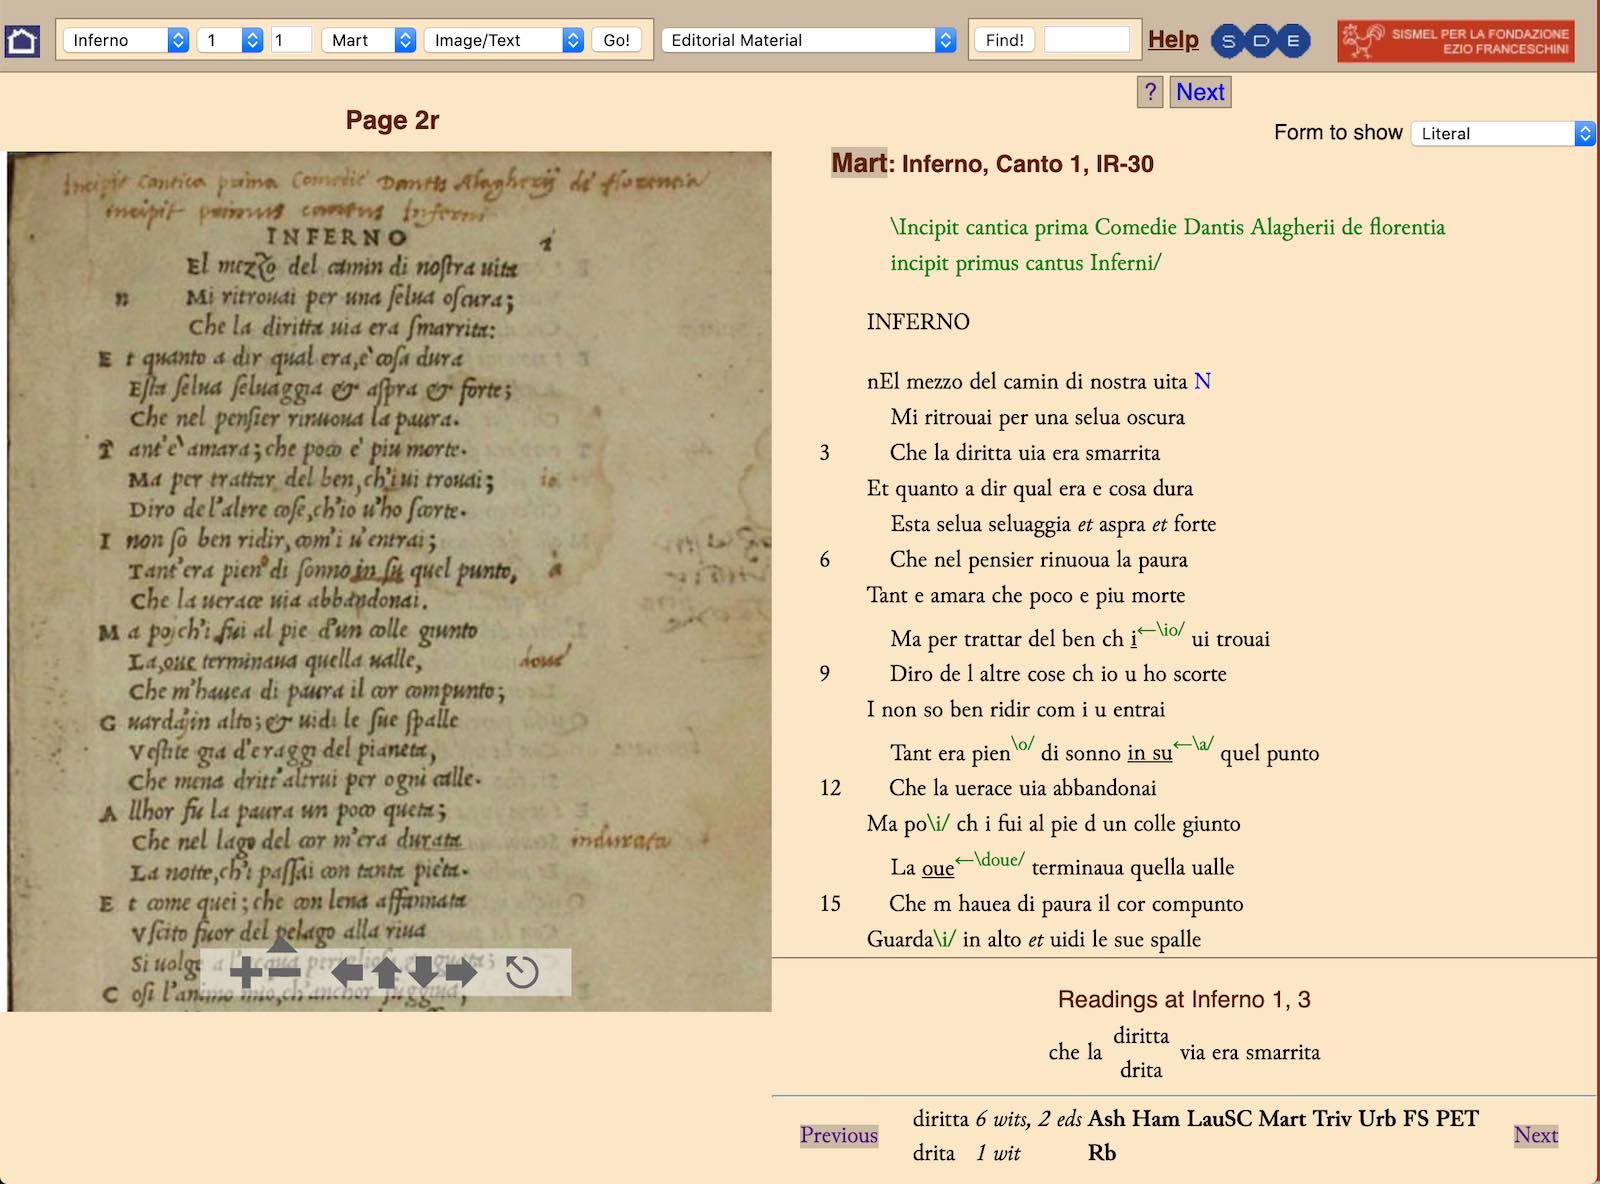 Inferno 1 1 Mart Image/Text Go! Editorial Material Find! Help S D E SISMEL PER LA FONDAZIONE
EZIO FRANCESCHINI
? Next
Page 2r
Form to show Literal
Incipit cantica prima Comedie Dantis Alagherij de florentia
incipit primus cantus Inferni
INFERNO
1
El mezzo del camin di noſtra uita
n Mi ritrouai per una ſelua oſcura;
Che la diritta uia era ſmarrita:
E t quanto a dir qual era, e' coſa dura
Eſta ſelua ſeluaggia & aſpra & forte;
Che nel penſier rinuoua la paura.
T ant'e' amara; che poco e' piu morte.
Ma per trattar del ben, ch'i ui trouai; io
Diro de l'altre coſe, ch'io u'ho ſcorte.
I non ſo ben ridir, com'i u'entrai;
Tant'era pien o di ſonno in ſu quel punto, a
Che la uerace uia abbandonai.
M a poi ch'i fui al pie d'un colle giunto
La, oue terminaua quella ualle, doue
Che m'hauea di paura il cor compunto;
G uardai in alto; & uidi le ſue ſpalle
Veſtite gia d'e raggi del pianeta,
Che mena dritt'altrui per ogni calle.
A llhor fu la paura un poco queta;
Che nel lago del cor m'era durata indurata
La notte, ch'i paſſai con tanta pieta.
E t come quei; che con lena affannata
Vſcito fuor del pelago alla riua
Si uolge a l'acqua perigliosa
C oſi l'animo mio, ch'anchor fuggiua,
Mart: Inferno, Canto 1, IR-30
\Incipit cantica prima Comedie Dantis Alagherii de florentia
incipit primus cantus Inferni/
INFERNO
nEl mezzo del camin di nostra uita N
Mi ritrouai per una selua oscura
3 Che la diritta uia era smarrita
Et quanto a dir qual era e cosa dura
Esta selua seluaggia et aspra et forte
6 Che nel pensier rinuoua la paura
Tant e amara che poco e piu morte
Ma per trattar del ben ch i←\io/ ui trouai
9 Diro de l altre cose ch io u ho scorte
I non so ben ridir com i u entrai
Tant era pien\o/ di sonno in su←\a/ quel punto
12 Che la uerace uia abbandonai
Ma po\i/ ch i fui al pie d un colle giunto
La oue←\doue/ terminaua quella ualle
15 Che m hauea di paura il cor compunto
Guarda\i/ in alto et uidi le sue spalle
Readings at Inferno 1, 3
che la diritta via era smarrita
drita
Previous
diritta 6 wits, 2 eds Ash Ham LauSC Mart Triv Urb FS PET
drita 1 wit Rb
Next